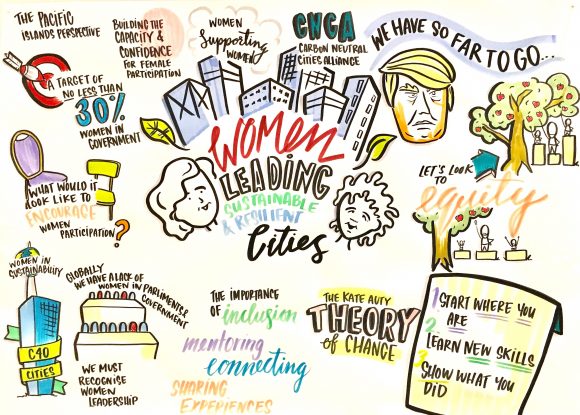 THE PACIFIC
ISLANDS PERSPECTIVE
A TARGET OF
NO LESS THAN
30%
WOMEN IN
GOVERNMENT
BUILDING THE
CAPACITY &
CONFIDENCE
FOR FEMALE
PARTICIPATION
WOMEN
Supporting
WOMEN
CNGA
CARBON NEUTRAL
CITIES ALLIANCE
WE HAVE SO FAR TO GO...
WOMEN
LEADING
SUSTAINABLE
& RESILIENT
Cities
WHAT WOULD IT
LOOK LIKE TO
ENCOURAGE
WOMEN
PARTICIPATION?
LET'S LOOK
TO
equity
WOMEN IN
SUSTAINABILITY
C40
CITIES
GLOBALLY
WE HAVE A LACK OF
WOMEN IN PARLIMENTS &
GOVERNMENT
WE MUST
RECOGNISE
WOMEN
LEADERSHIP
THE IMPORTANCE
OF inclusion
mentoring
connecting
SHARING
EXPERIENCES
THE KATE AUTY
THEORY
of CHANGE
1 START WHERE YOU
ARE
2 LEARN NEW SKILLS
3 SHOW WHAT YOU
DID